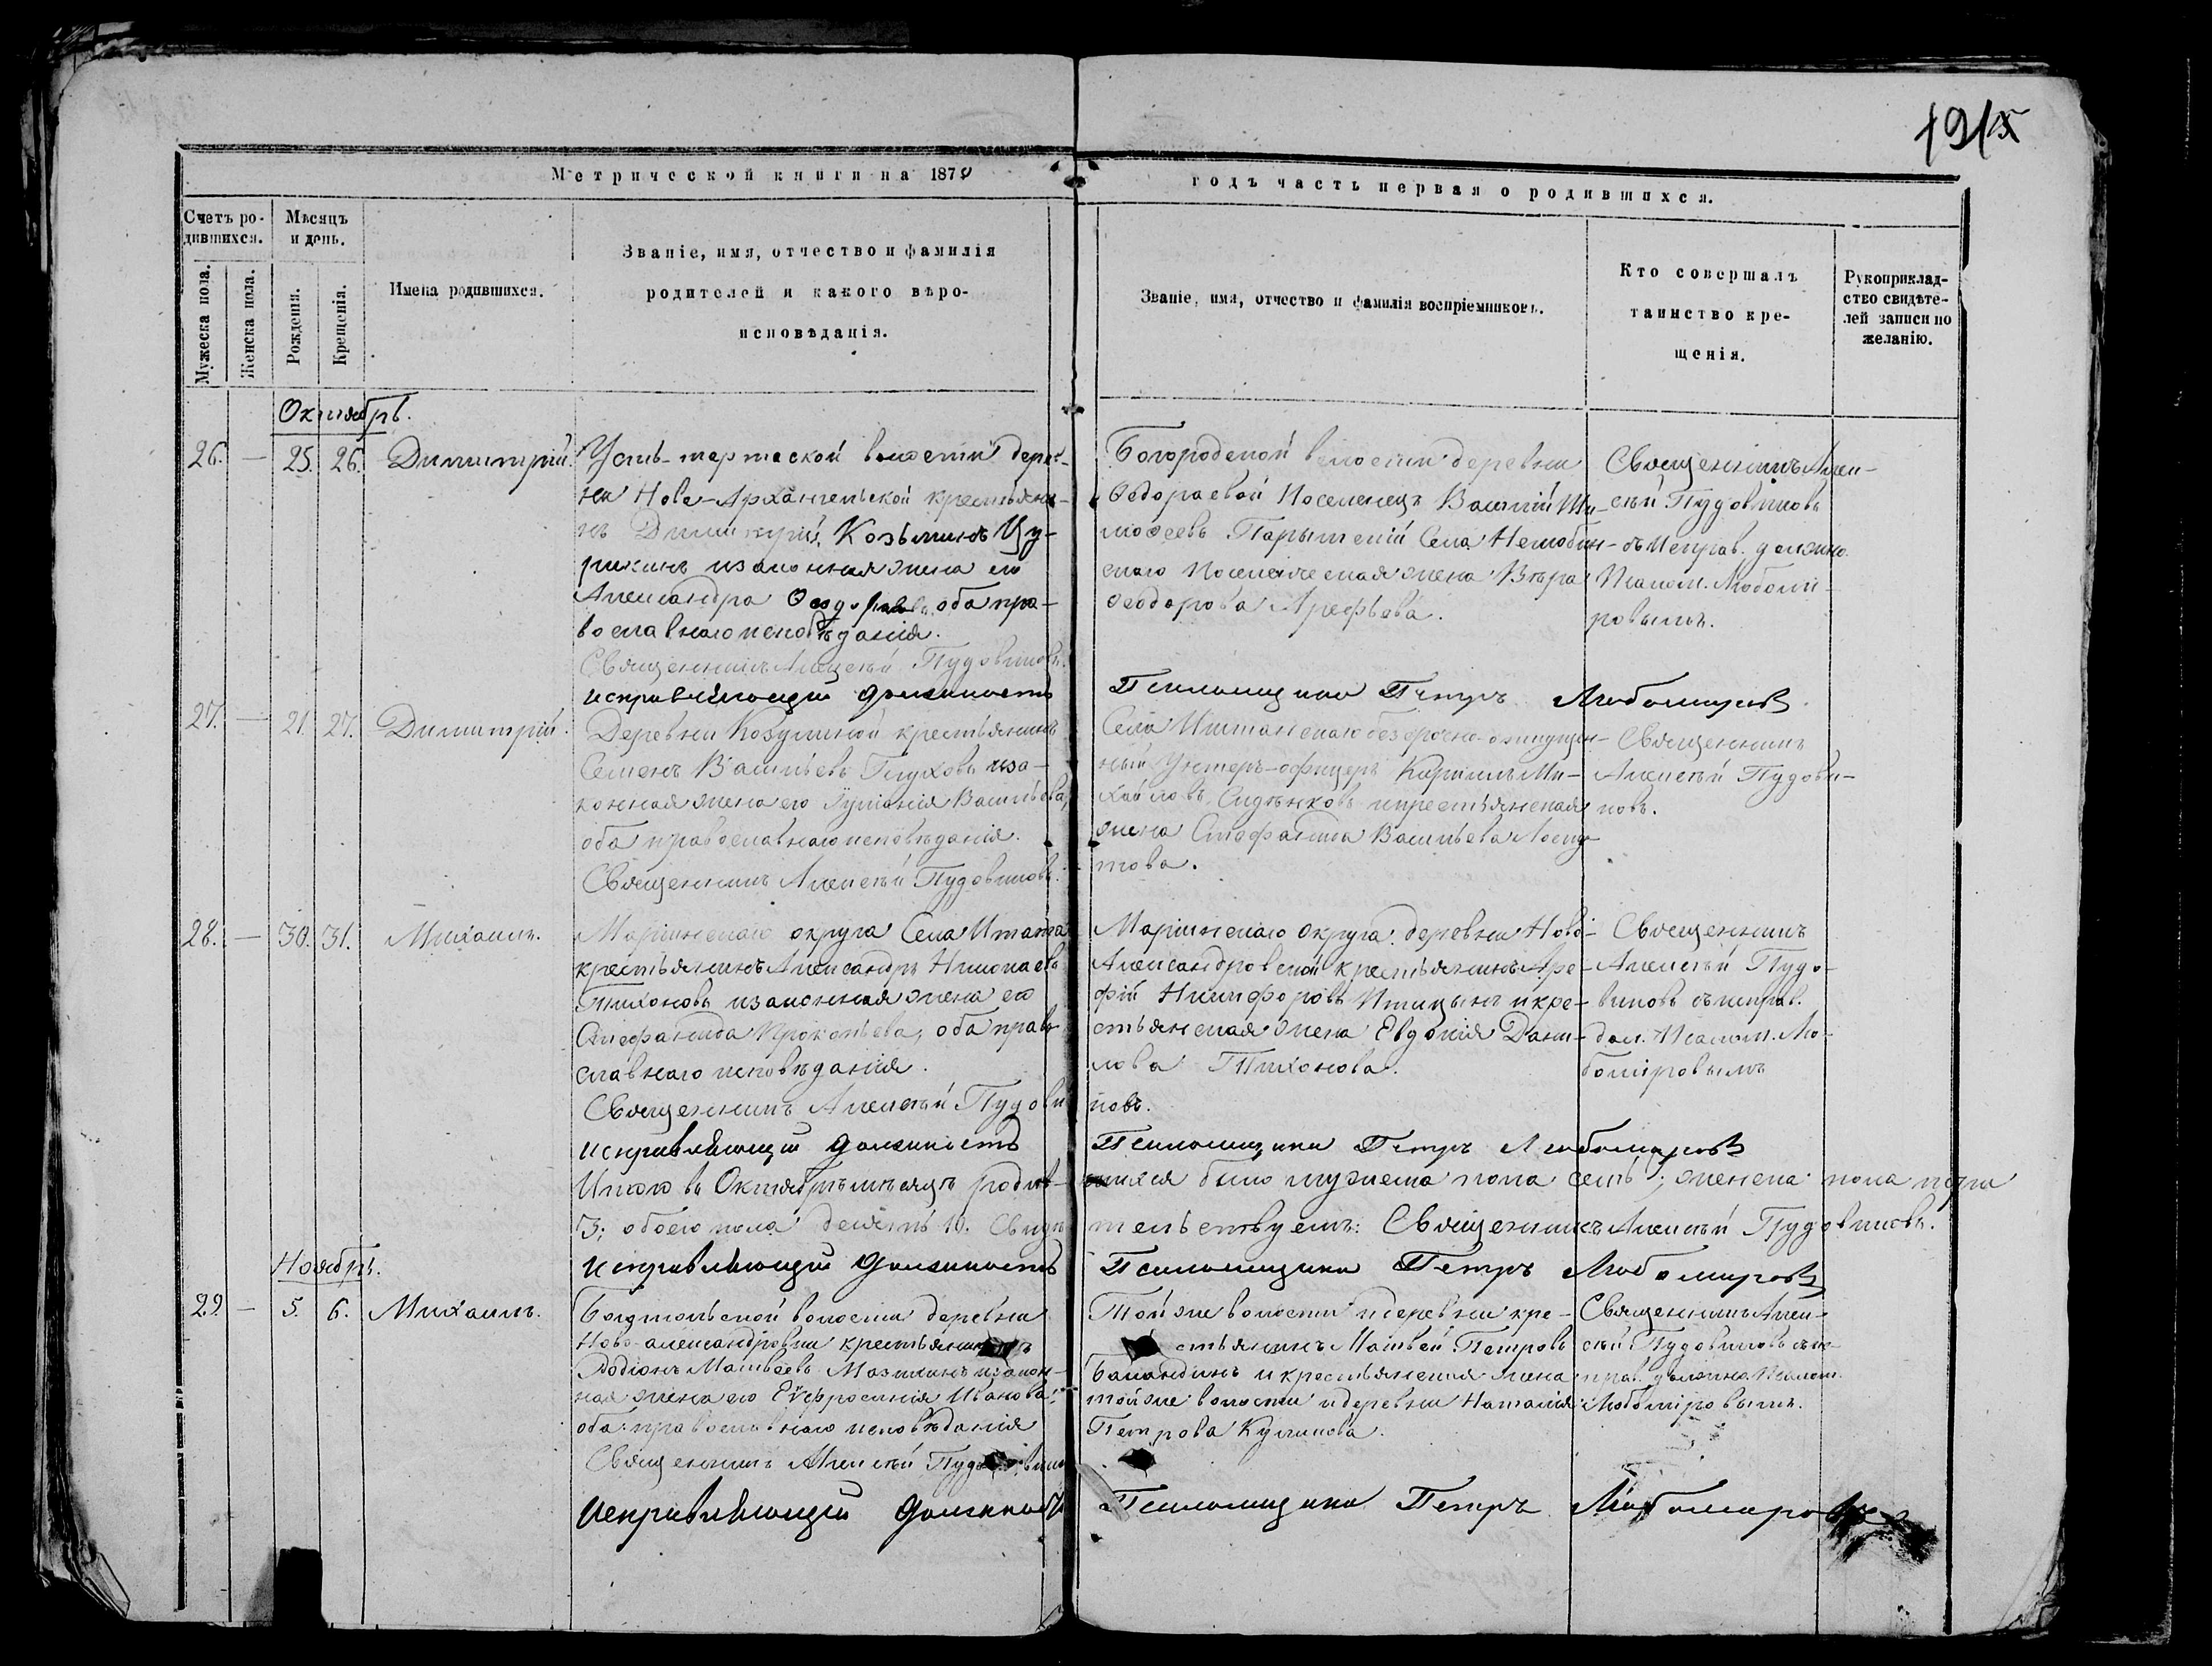 191
Метрической книги на 187
годъ часть первая о родившихся.
Счетъ ро-
дившихся.
Мужеска пола.
Женска пола.
Мѣсяцъ
и день.
Рожденія.
Крещенія.
Имена родившихся.
Званіе, имя, отчество и фамилія
родителей и какого вѣро-
исповѣданія.
Званіе, имя, отчество и фамилія воспріемниковъ.
Кто совершалъ
таинство кре-
щенія.
Рукоприклад-
ство свидѣте-
лей записи по
желанію.
Октябрь.
26. — 25. 26. Димитрій.
Усть-тартаской волости дерев-
ни Ново-Архангельской крестьяни-
нъ Димитрій Козьминъ Цу-
риканъ изаконная жена его
Александра Ѳеодорова, оба пра-
вославнаго исповѣданія.
Священникъ Алексѣй Пудовиковъ.
Исправляющій должность
Богородской волости деревни
Поселенецъ Василій Ти-
моѳеевъ Села
поселенческая жена Вѣра
Ѳеодорова Арефьева.
Псаломщика Петръ Любомировъ
Священникъ Алек-
сѣй Пудовиковъ
съ исправ. должно.
Псалом. Любоми-
ровымъ.
27. — 21. 27. Димитрій.
Деревни Козулиной крестьянинъ
Семенъ Васильевъ Глуховъ иза-
конная жена его Іуліанія Васильева,
оба православнаго исповѣданія.
Священникъ Алексѣй Пудовиковъ.
Села безсрочно-отпущен-
ный Унтеръ-офицеръ Кириллъ Ми-
хайловъ икрестьянская
жена Стефанида Васильева
това.
Священникъ
Алексѣй Пудови-
ковъ.
28. — 30. 31. Михаилъ.
Маріинскаго округа Села Итата
крестьянинъ Александръ Николаевъ
Тихоновъ изаконная жена его
Стефанида Прокопьева, оба право-
славнаго исповѣданія.
Священникъ Алексѣй Пудови
Исправляющій должность
Маріинскаго округа деревни Ново-
Александровской крестьянинъ Аре-
фій Никифоровъ Птицынъ икре-
стьянская жена Евдокія Дани-
лова Тихонова.
ковъ.
Псаломщика Петръ Любомировъ
Священникъ
Алексѣй Пудо-
виковъ съ исправ.
дол. Псалом. Лю-
боміровымъ
Итого въ Октябрѣ мѣсяцѣ родив-шихся было мужеска пола семь; женска пола три
3; обоего пола десять 10. Свидѣ-тельствуемъ: Священникъ Алексѣй Пудовиковъ.
Исправляющій должность Псаломщика Петръ Любомировъ
Ноябрь.
29 — 5. 6. Михаилъ.
Боготольской волости деревни
Ново-александровки крестьянинъ
Родіонъ Матвѣевъ изакон-
ная жена его Евфросинія Иванова,
оба православнаго исповѣданія
Священникъ Алексѣй Пудовико
Исправляющій должность
Той же волости идеревни кре-
стьянинъ Матвей Петровъ
Баландинъ икрестьянская жена
тойже волости идеревни Наталія
Петрова Куликова.
Псаломщика Петръ Любомировъ
Священникъ Алек-
сѣй Пудовиковъ съ ис-
прав. должно. Псалом.
Любоміровымъ.